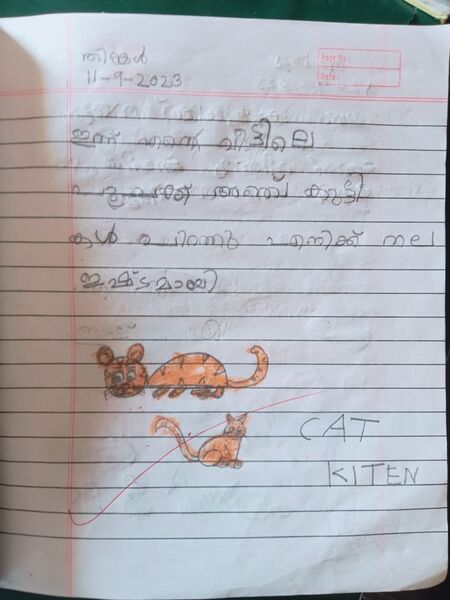 തിങ്കൾ
11-9-2023
Page No:
Date:
ഇന്ന് എന്റെ വീട്ടിലെ
പൂച്ചക്ക് അഞ്ച് കുട്ടി
കൾ പിറന്നു എനിക്ക് നല
ഇഷ്ടമായി
CAT
KITEN